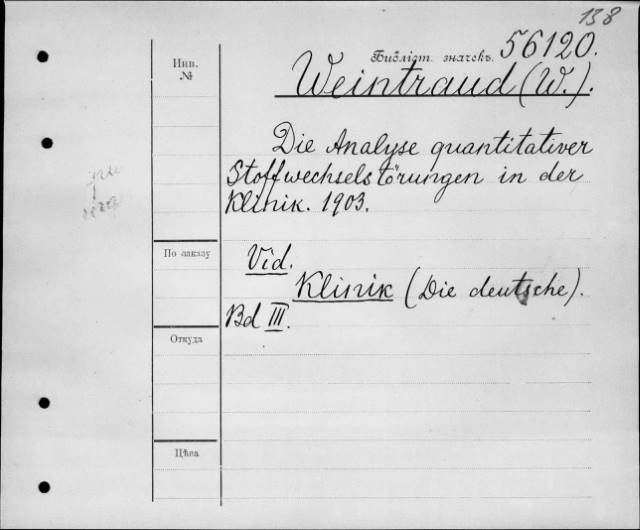 138
Инв. №
Библіот. значекъ. 56120.
Weintraud (W.).
Die Analyse quantitativer
Stoffwechselstörungen in der
Klinik. 1903.
По заказу
Vid.
Klinik (Die deutsche).
Bd III.
Откуда
Цѣна